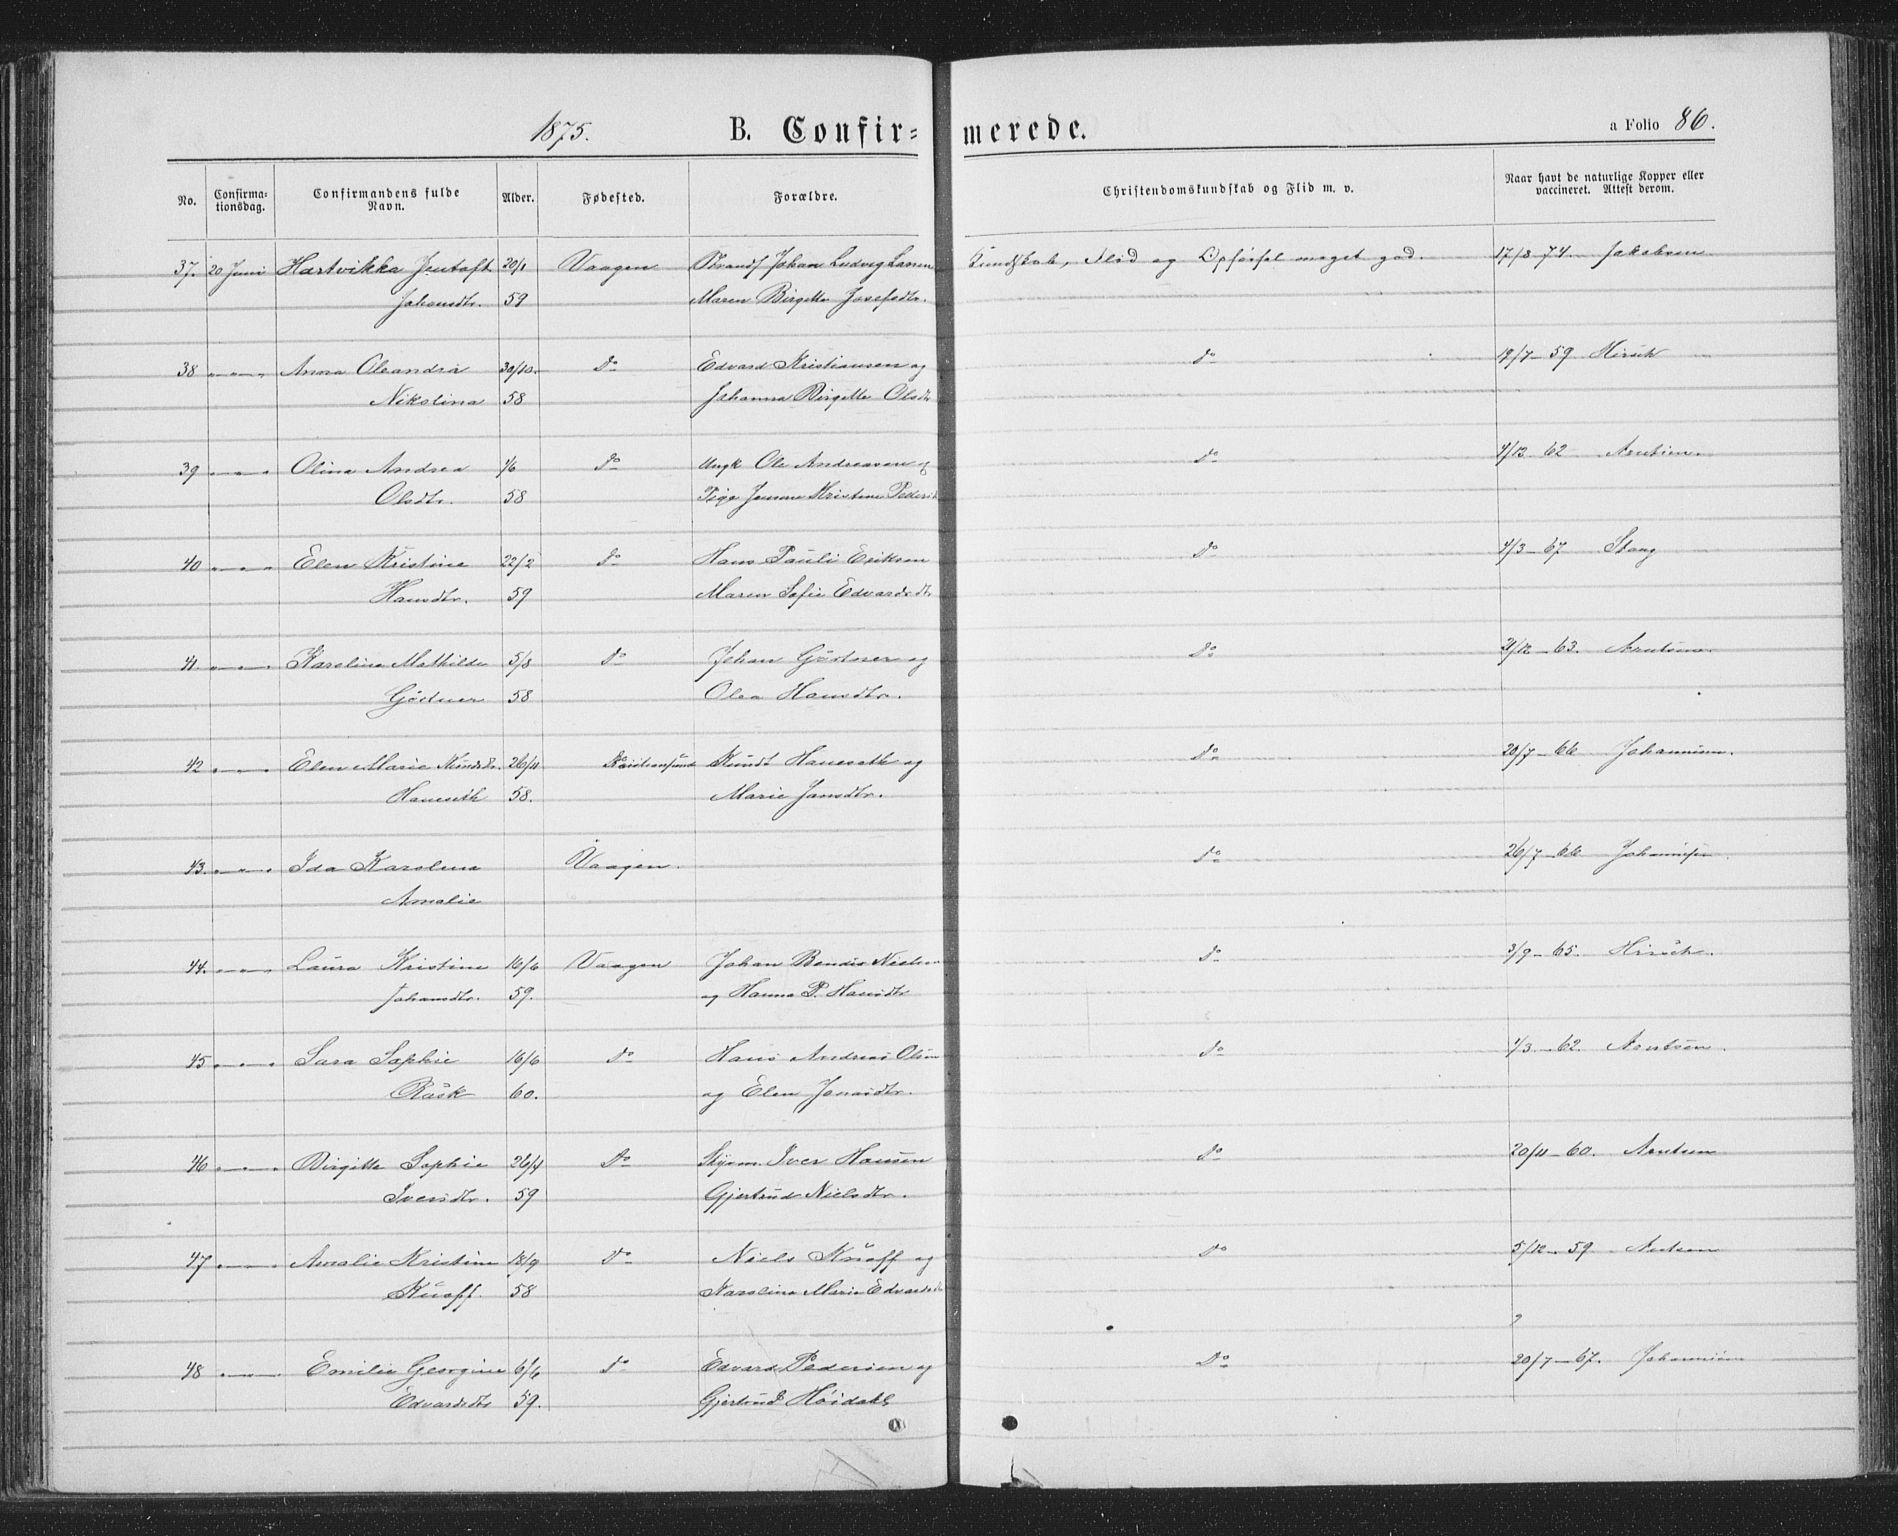 1875. B. Confir= merede. a Folio 86.
No. Confirma=tionsdag. Confirmandens fulde Navn. Alder. Fødested. Forældre. Christendomskundskab og Flid m. v. Naar havt de naturlige Kopper eller vaccineret. Attest derom.
37. 20 Juni Hartvikka Jentoft 20/1 Vaagen Johan Ludvig Larsen Kundskab, Flid og Opførsel meget god. 17/3 74. Jakobsen
Johansdtr. 59 Maren Birgitte Josefsdtr.
38 " " " Anna Oleandra 30/10. do Edvard Kristiansen og do 19/7 - 59 Hirsch
Nikolina 58 Johanna Birgitte Olsdtr
39 " " " Olina Andrea 1/6 do Ungk Ole Andreassen og do 4/12 62 Arntsen.
Olsdtr. 58 Pige Kristine
40 " " " Elen Kristine 22/2 do Hans Pauli Eriksen do 4/3 - 67 Stang
Hansdtr. 59 Maren Sofie Edvardsdtr
41. " " " Karoline Mathilde 5/8 do Johan Göstner og do 2/12 - 63. Arntsen.
Göstner 58 Olea Hansdtr.
42 " " " Elen Marie Knudsdtr. 26/11 Kristiansund Knudt Haneseth og do 20/7 - 66 Johannesen.
Haneseth 58. Marie Jansdtr.
43. " " " Ida Karolina Vaagen. do 26/7 - 66 Johannesen
Amalie
44. " " " Laura Kristine 16/6 Vaagen Johan Bendix Nielsen do 3/9 - 65. Hirsch.
Johansdtr. 59. og Hanna P. Hansdtr
45 " " " Sara Sophie 16/6 do Hans Andreas Olsen do 1/3 - 62. Arntsen.
Rask 60. og Elen Jonasdtr.
46 " " " Birgitte Sophie 26/4 do Iver Hansen do 20/11 - 60. Arntsen
Iversdtr. 59 Gjertrud Nielsdtr.
47 " " " Amalie Kristine 18/9 do Niels Knoff og do 5/12 - 59 Arntsen
Knoff. 58 Karolina Marie Edvardsdtr
48 " " " Emilie Georgine 6/6 do Edvard Pedersen og Do 20/7 - 67. Johannesen
Edvardsdtr 59. Gjertrud Høidahl